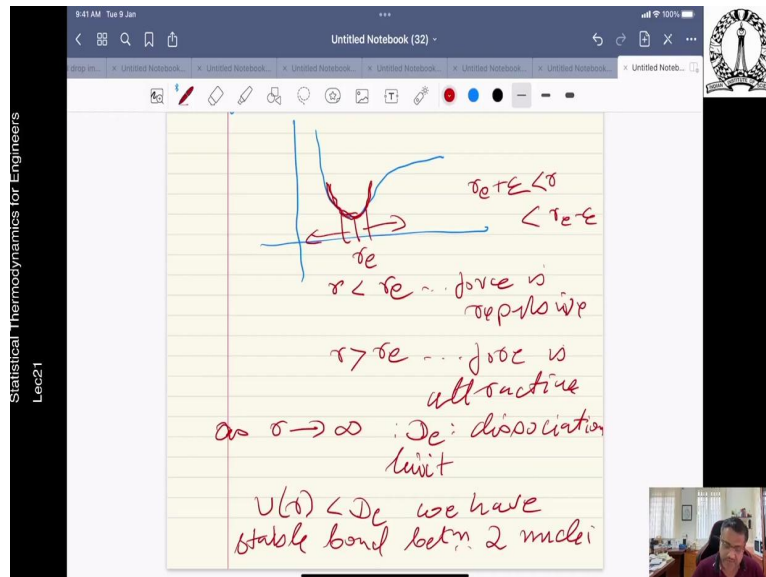 9:41 AM Tue 9 Jan
100%
Untitled Notebook (32)
drop im...
Untitled Notebook...
Untitled Notebook...
Untitled Notebook...
Untitled Notebook...
Untitled Notebook...
Untitled Notebook...
Untitled Noteb...
Statistical Thermodynamics for Engineers
Lec21
re+ε<r
< re-ε
re
r < re ... force is
repulsive
r > re ... force is
attractive
as r → ∞ : De : dissociation
limit
U(r) < De we have
stable bond betn. 2 nuclei